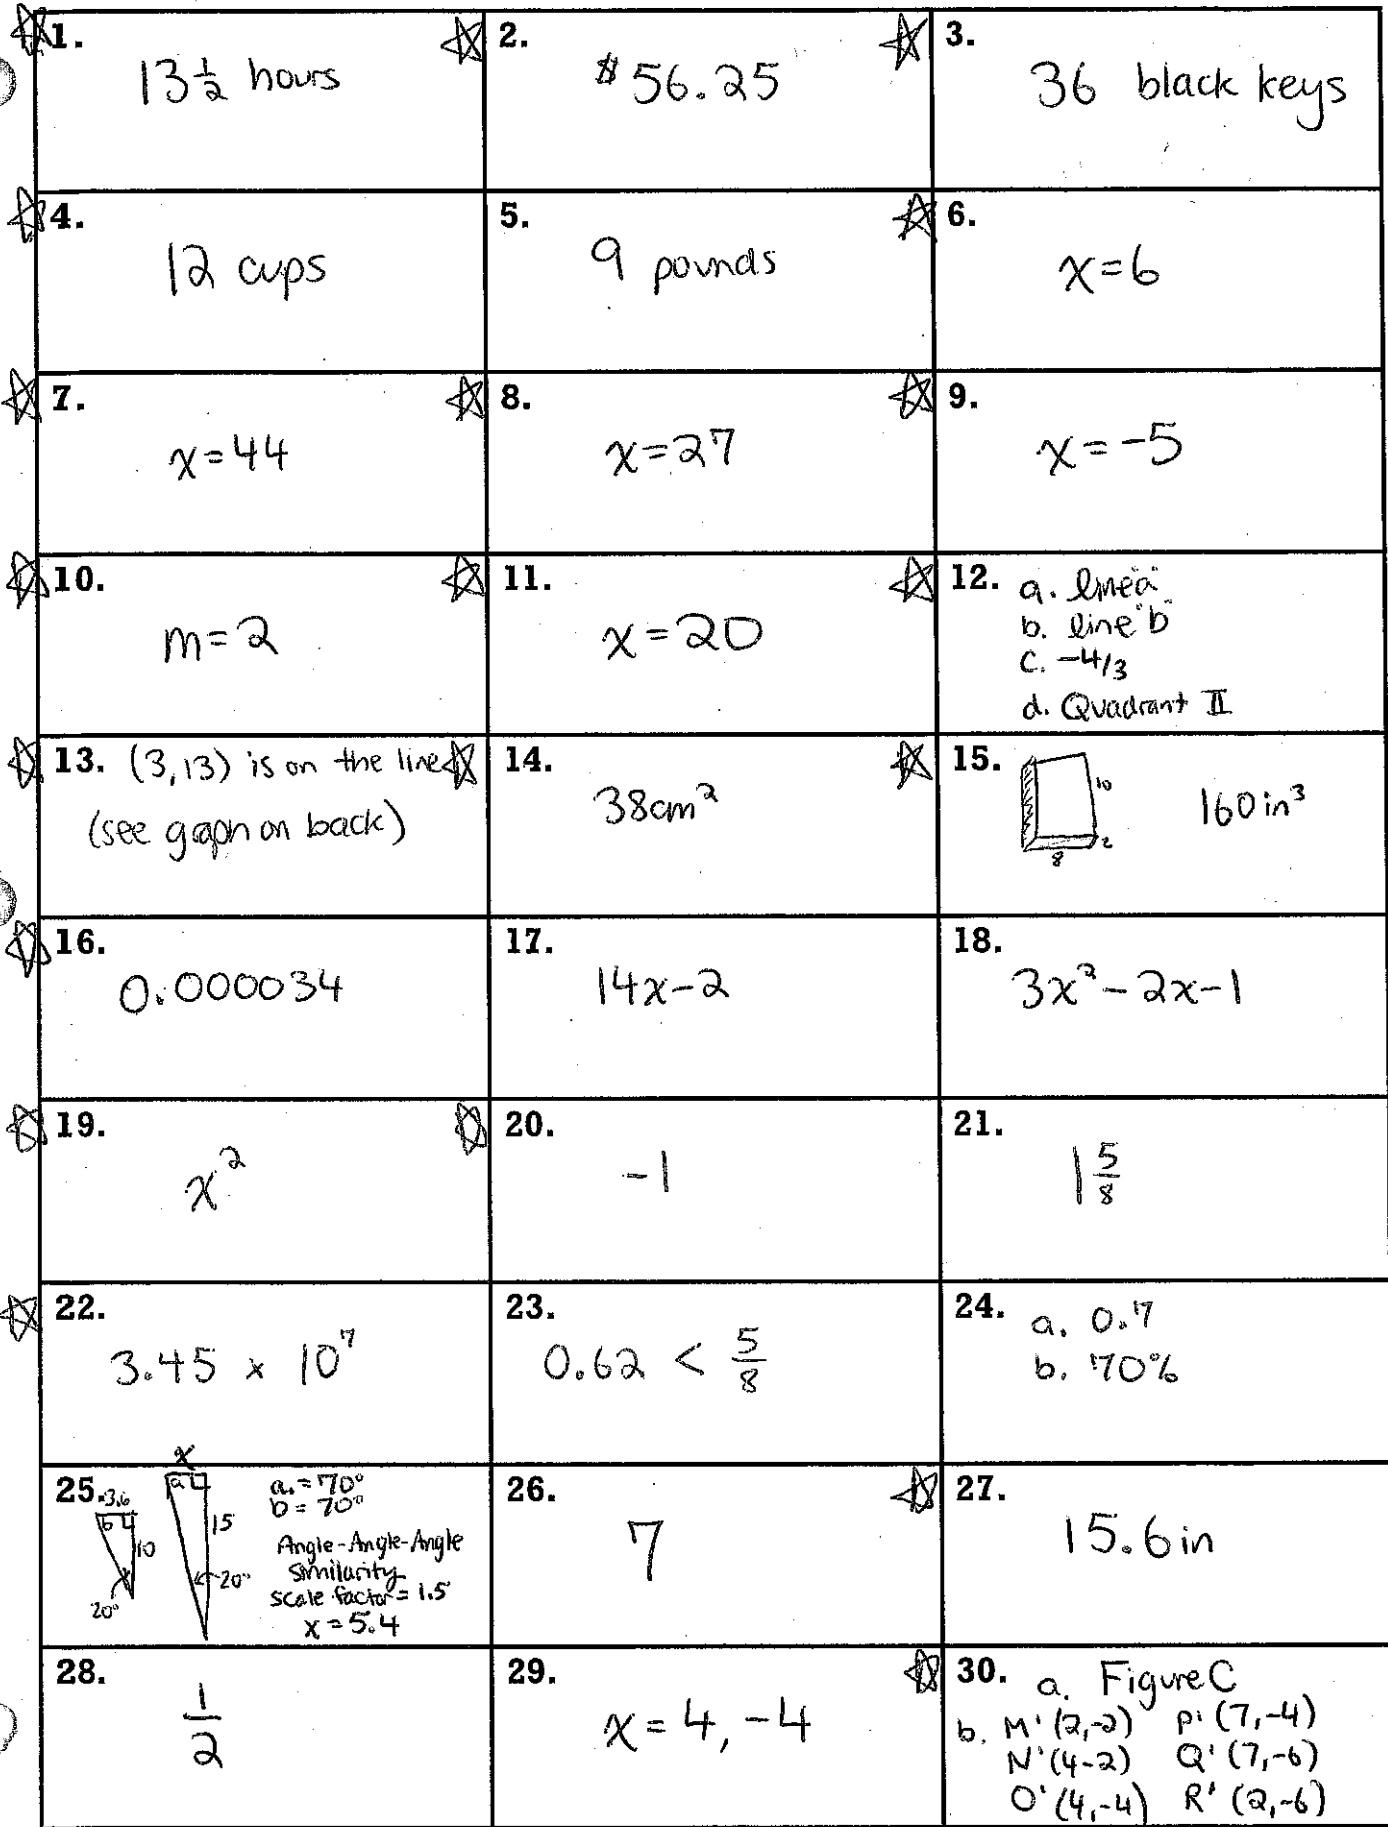 1.
13 1/2 hours
2.
$56.25
3.
36 black keys
4.
12 cups
5.
9 pounds
6.
x=6
7.
x=44
8.
x=27
9.
x=-5
10.
m=2
11.
x=20
12. a. line "a"
b. line "b"
c. -4/3
d. Quadrant II
13. (3,13) is on the line
(see graph on back)
14.
38cm²
15.
10
2
8
160in³
16.
0.000034
17.
14x-2
18.
3x²-2x-1
19.
x²
20.
-1
21.
1 5/8
22.
3.45 x 10⁷
23.
0.62 < 5/8
24. a. 0.7
b. 70%
25.
3.6
b
10
20°
x
a
15
20°
a.=70°
b=70°
Angle-Angle-Angle
Similarity
scale factor = 1.5
x=5.4
26.
7
27.
15.6in
28.
1/2
29.
x=4, -4
30. a. Figure C
b. M'(2,-2) P'(7,-4)
N'(4-2) Q'(7,-6)
O'(4,-4) R'(2,-6)